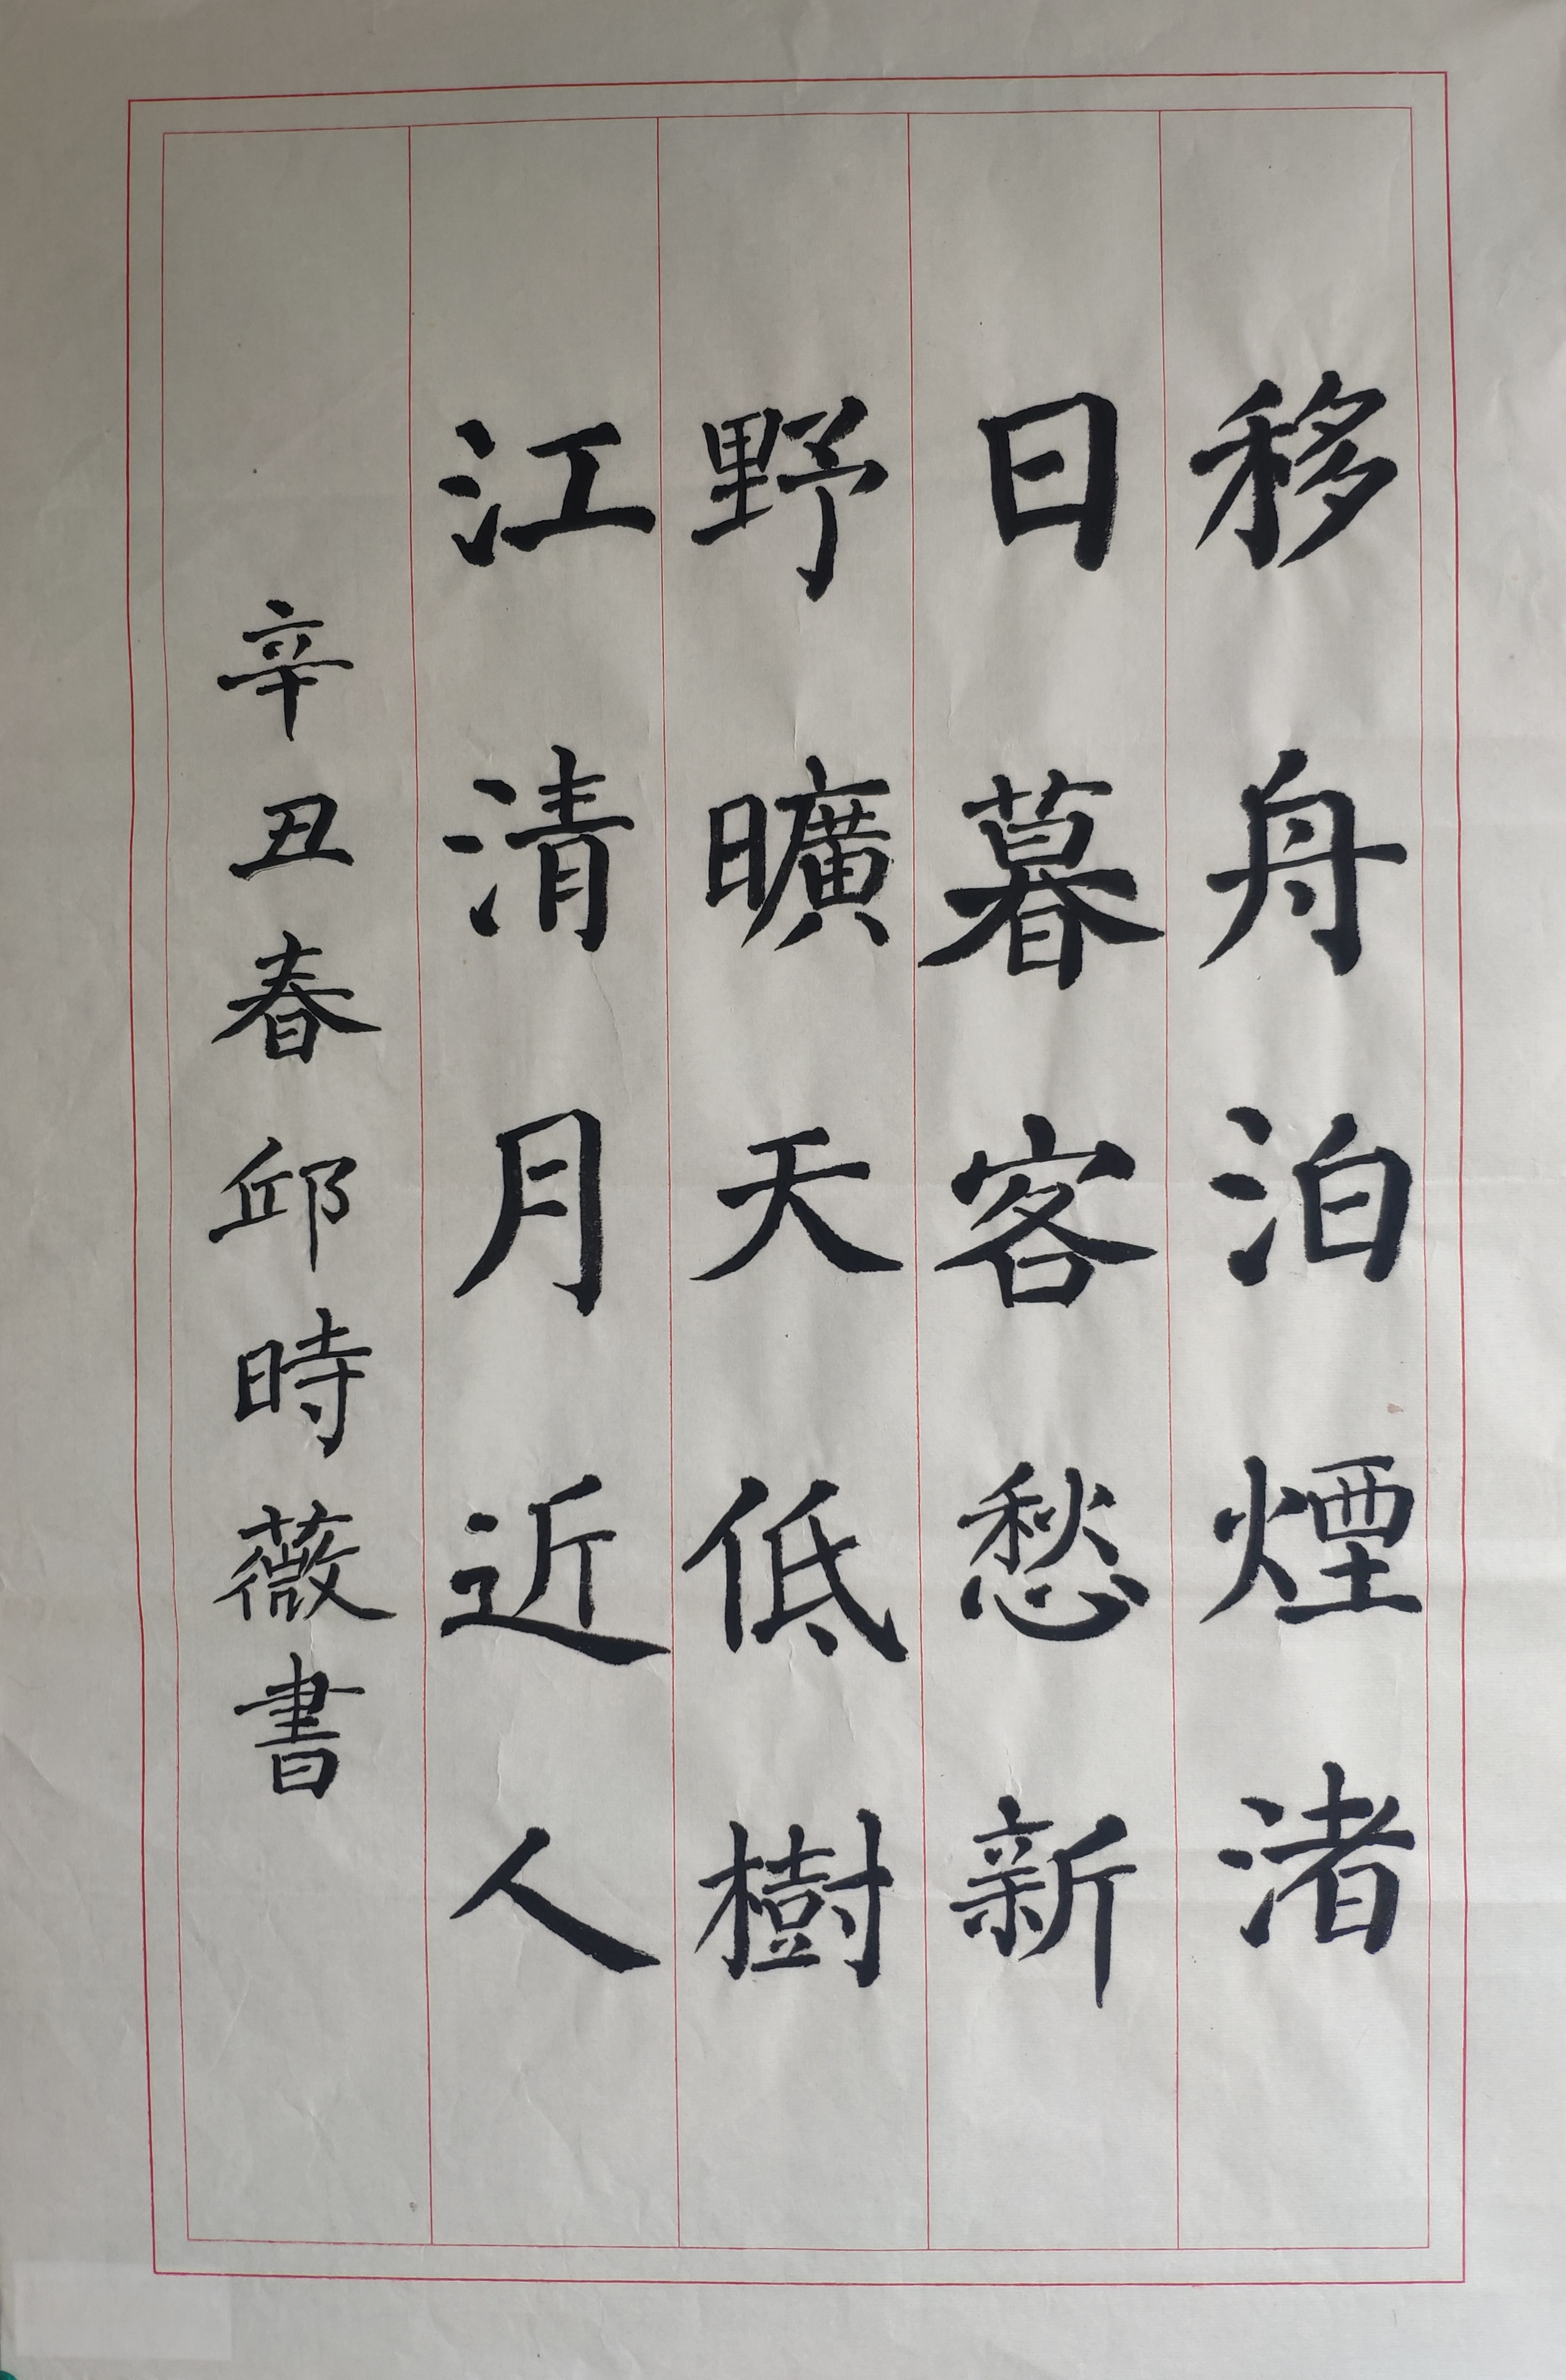 移舟泊煙渚
日暮客愁新
野曠天低樹
江清月近人
辛丑春邱時薇書